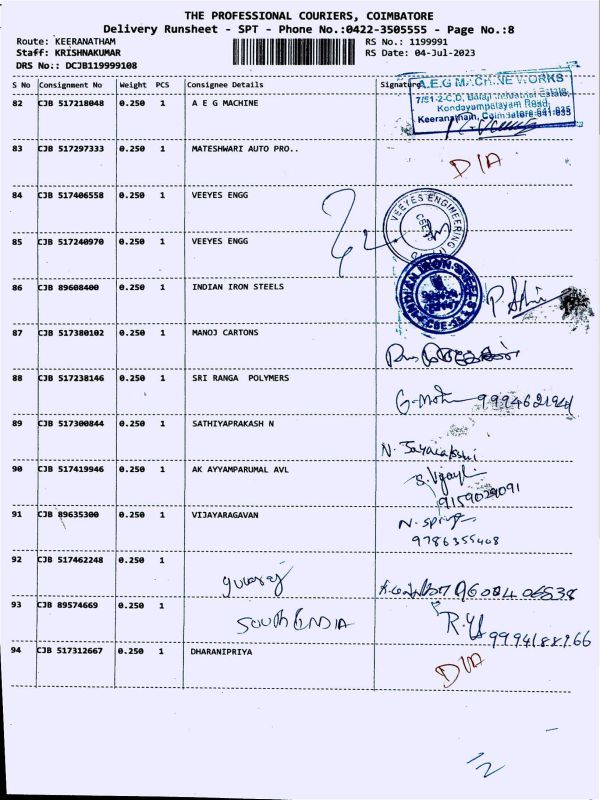 THE PROFESSIONAL COURIERS, COIMBATORE
Delivery Runsheet - SPT - Phone No.:0422-3505555 - Page No.:8
Route: KEERANATHAM RS No.: 1199991
Staff: KRISHNAKUMAR RS Date: 04-Jul-2023
DRS No.: DCJB119999108
S No Consignment No Weight PCS Consignee Details Signature
82 CJB 517218048 0.250 1 A E G MACHINE
A.E.G MACHINE WORKS
7/51-2-C,D, Balaji Industrial Estate,
Kondayampalayam Road,
Keeranatham, Coimbatore-641 035
83 CJB 517297333 0.250 1 MATESHWARI AUTO PRO..
D/A
84 CJB 517406558 0.250 1 VEEYES ENGG
VEEYES ENGINEERING
85 CJB 517240970 0.250 1 VEEYES ENGG
86 CJB 89608400 0.250 1 INDIAN IRON STEELS
INDIAN IRON STEELS
87 CJB 517380102 0.250 1 MANOJ CARTONS
88 CJB 517238146 0.250 1 SRI RANGA POLYMERS
89 CJB 517300844 0.250 1 SATHIYAPRAKASH N
90 CJB 517419946 0.250 1 AK AYYAMPARUMAL AVL
9159029091
91 CJB 89635300 0.250 1 VIJAYARAGAVAN
9786355408
92 CJB 517462248 0.250 1
93 CJB 89574669 0.250 1 SOUTH INDIA
94 CJB 517312667 0.250 1 DHARANIPRIYA
D/A